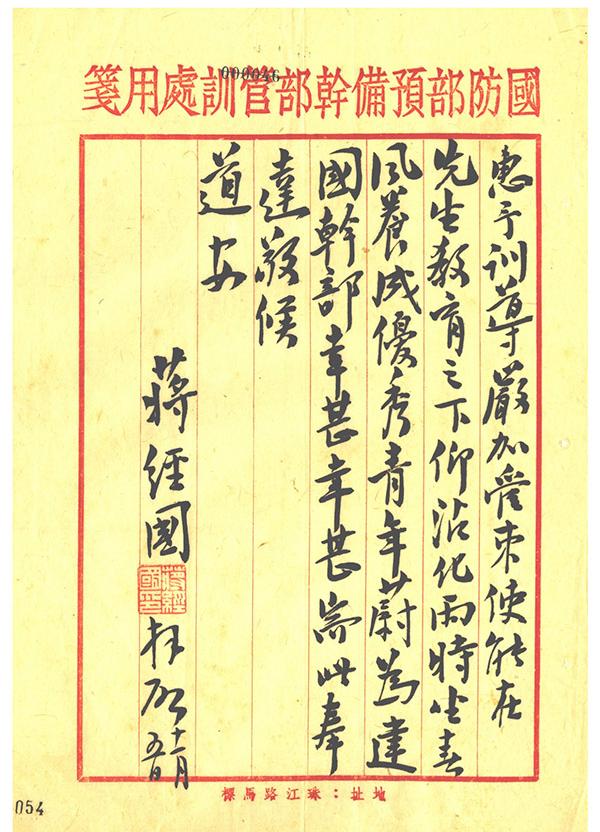 000046
國防部預備幹部管訓處用箋
惠予訓導嚴加管束使能在
先生教育之下仰沾化雨時坐春
風養成優秀青年蔚為建
國幹部幸甚幸甚耑此奉
達敬候
道安
蔣經國
蔣經國印
拜啟
十一月
五日
地址：珠江路馬標
054